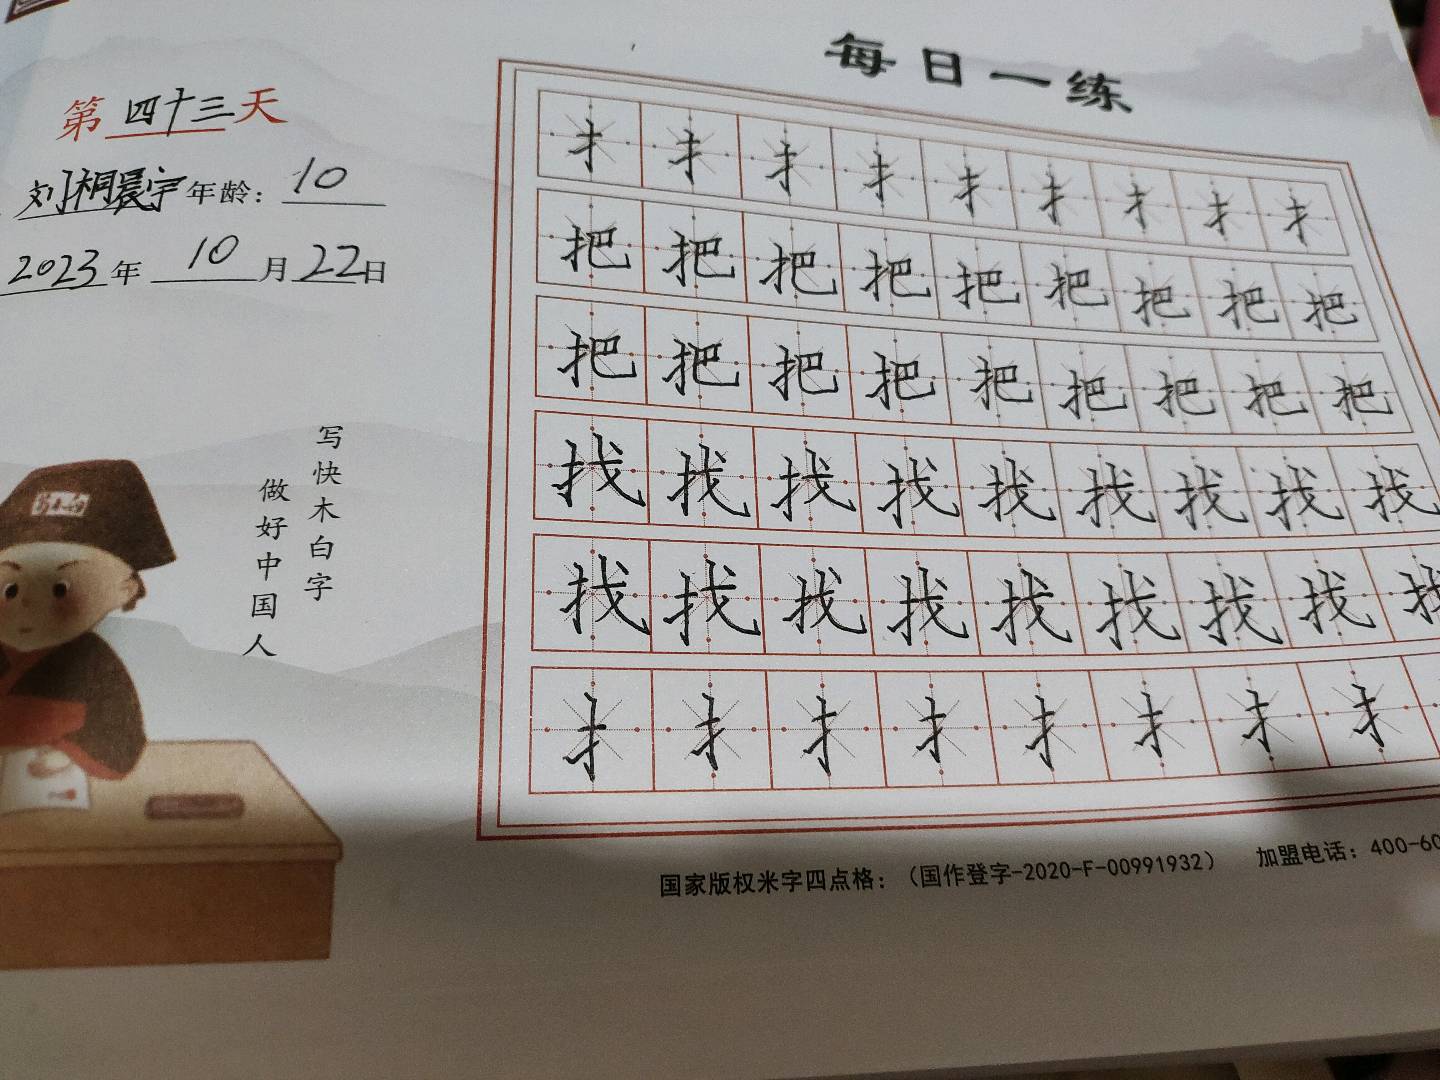 每日一练
第四十三天
刘桐晨宇年龄：10
2023年10月22日
扌扌扌扌扌扌扌扌扌
把把把把把把把把把
把把把把把把把把把
找找找找找找找找找
找找找找找找找找找
扌扌扌扌扌扌扌扌
写快木白字
做好中国人
国家版权米字四点格：（国作登字-2020-F-00991932） 加盟电话：400-60